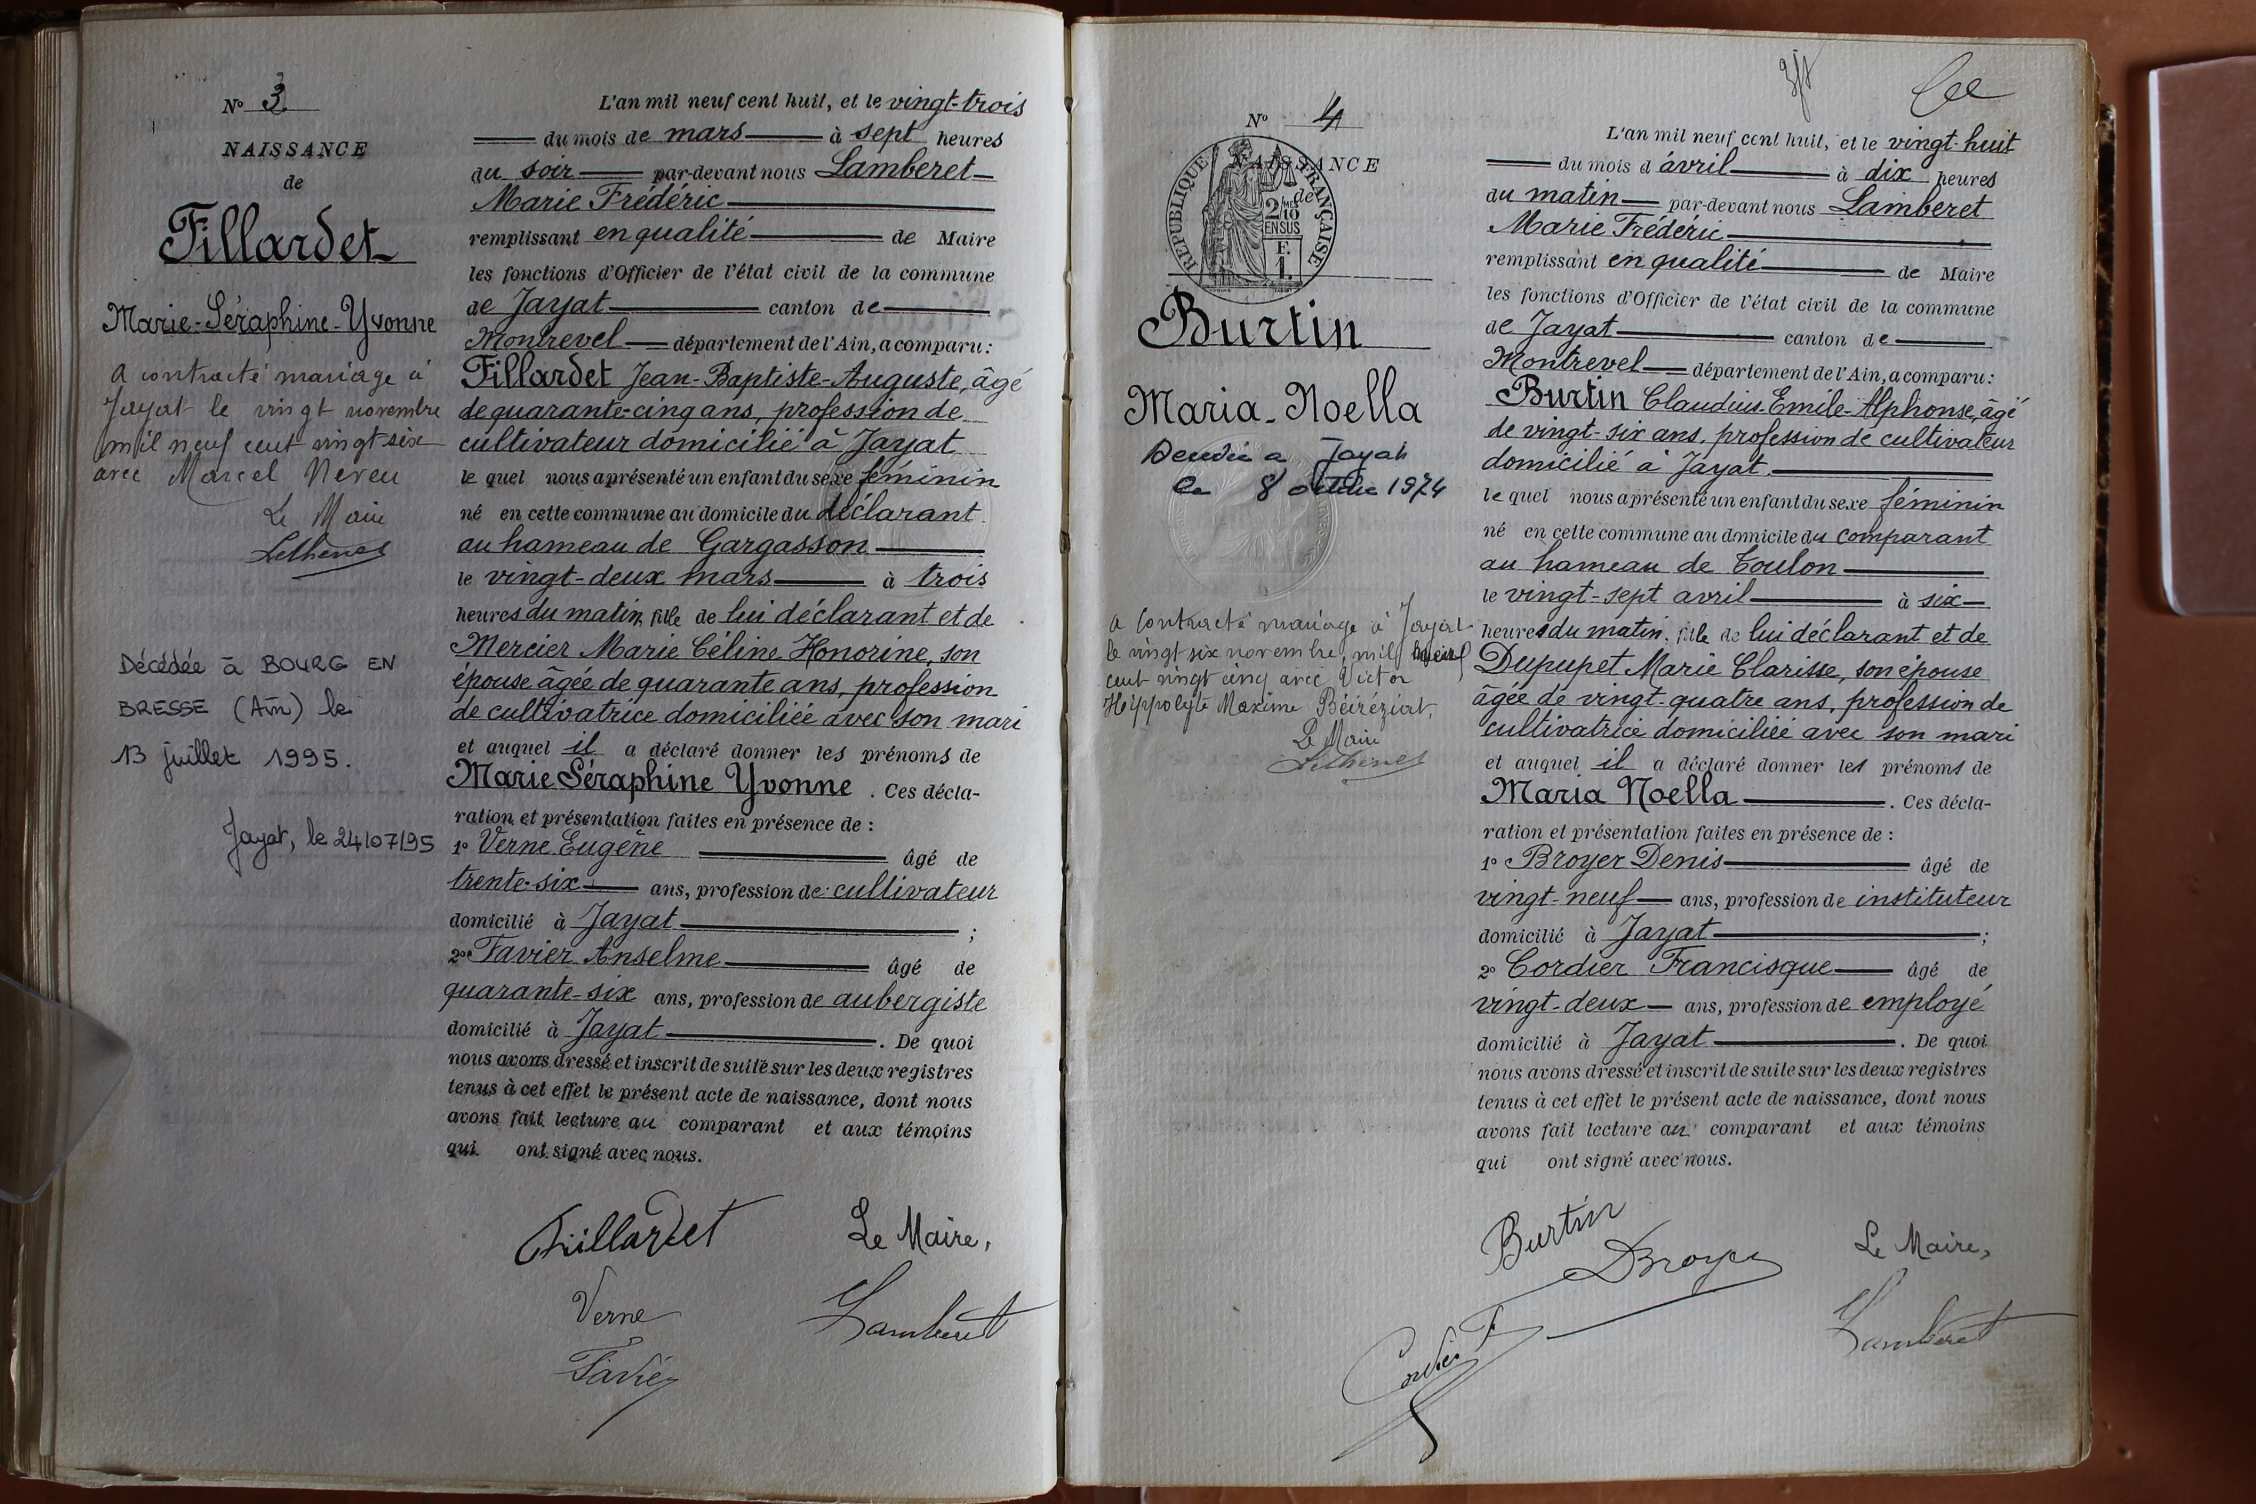 N° 3
NAISSANCE
de
Fillardet
Marie-Séraphine-Yvonne
a contracté mariage à
Jayat le vingt novembre
mil neuf cent vingt six
avec Marcel Neveu
Le Maire
Décédée à BOURG EN
BRESSE (Ain) le
13 juillet 1995.
Jayat, le 24/07/95
L'an mil neuf cent huit, et le vingt-trois
du mois de mars à sept heures
du soir par-devant nous Lamberet
Marie Frédéric
remplissant en qualité de Maire
les fonctions d'Officier de l'état civil de la commune
de Jayat canton de
Montrevel département de l'Ain, a comparu:
Fillardet Jean-Baptiste-Auguste, âgé
de quarante-cinq ans, profession de
cultivateur domicilié à Jayat
le quel nous a présenté un enfant du sexe féminin
né en cette commune au domicile du déclarant
au hameau de Gargasson
le vingt-deux mars à trois
heures du matin, fille de lui déclarant et de
Mercier Marie Céline Honorine, son
épouse âgée de quarante ans, profession
de cultivatrice domiciliée avec son mari
et auquel il a déclaré donner les prénoms de
Marie Séraphine Yvonne. Ces décla-
ration et présentation faites en présence de :
1° Verne Eugène âgé de
trente-six ans, profession de cultivateur
domicilié à Jayat ;
2° Favier Anselme âgé de
quarante-six ans, profession de aubergiste
domicilié à Jayat. De quoi
nous avons dressé et inscrit de suite sur les deux registres
tenus à cet effet le présent acte de naissance, dont nous
avons fait lecture au comparant et aux témoins
qui ont signé avec nous.
Fillardet Le Maire,
Verne Lamberet
Favier
N° 4
NAISSANCE
de
REPUBLIQUE FRANÇAISE
2/10 MES
EN SUS
F.
1.
Burtin
Maria-Noella
Décédée à Jayat
le 8 octobre 1974
a contracté mariage à Jayat
le vingt six novembre mil neuf
cent vingt cinq avec Victor
Hippolyte Maxime Béréziat,
Le Maire
L'an mil neuf cent huit, et le vingt-huit
du mois d'avril à dix heures
du matin par-devant nous Lamberet
Marie Frédéric
remplissant en qualité de Maire
les fonctions d'Officier de l'état civil de la commune
de Jayat canton de
Montrevel département de l'Ain, a comparu:
Burtin Claudius-Emile-Alphonse, âgé
de vingt-six ans, profession de cultivateur
domicilié à Jayat.
le quel nous a présenté un enfant du sexe féminin
né en cette commune au domicile du comparant
au hameau de Toulon
le vingt-sept avril à six
heures du matin, fille de lui déclarant et de
Dupupet Marie Clarisse, son épouse
âgée de vingt-quatre ans, profession de
cultivatrice domiciliée avec son mari
et auquel il a déclaré donner les prénoms de
Maria Noella. Ces décla-
ration et présentation faites en présence de :
1° Broyer Denis âgé de
vingt-neuf ans, profession de instituteur
domicilié à Jayat ;
2° Cordier Francisque âgé de
vingt-deux ans, profession de employé
domicilié à Jayat. De quoi
nous avons dressé et inscrit de suite sur les deux registres
tenus à cet effet le présent acte de naissance, dont nous
avons fait lecture au comparant et aux témoins
qui ont signé avec nous.
Burtin
DBroyer Le Maire,
Cordier F Lamberet